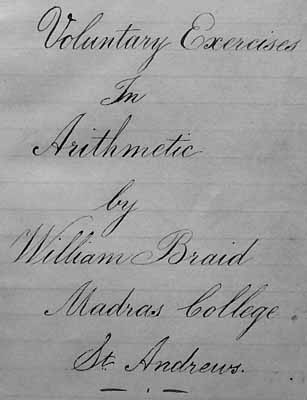 Voluntary Exercises
In
Arithmetic
by
William Braid
Madras College
St. Andrews.